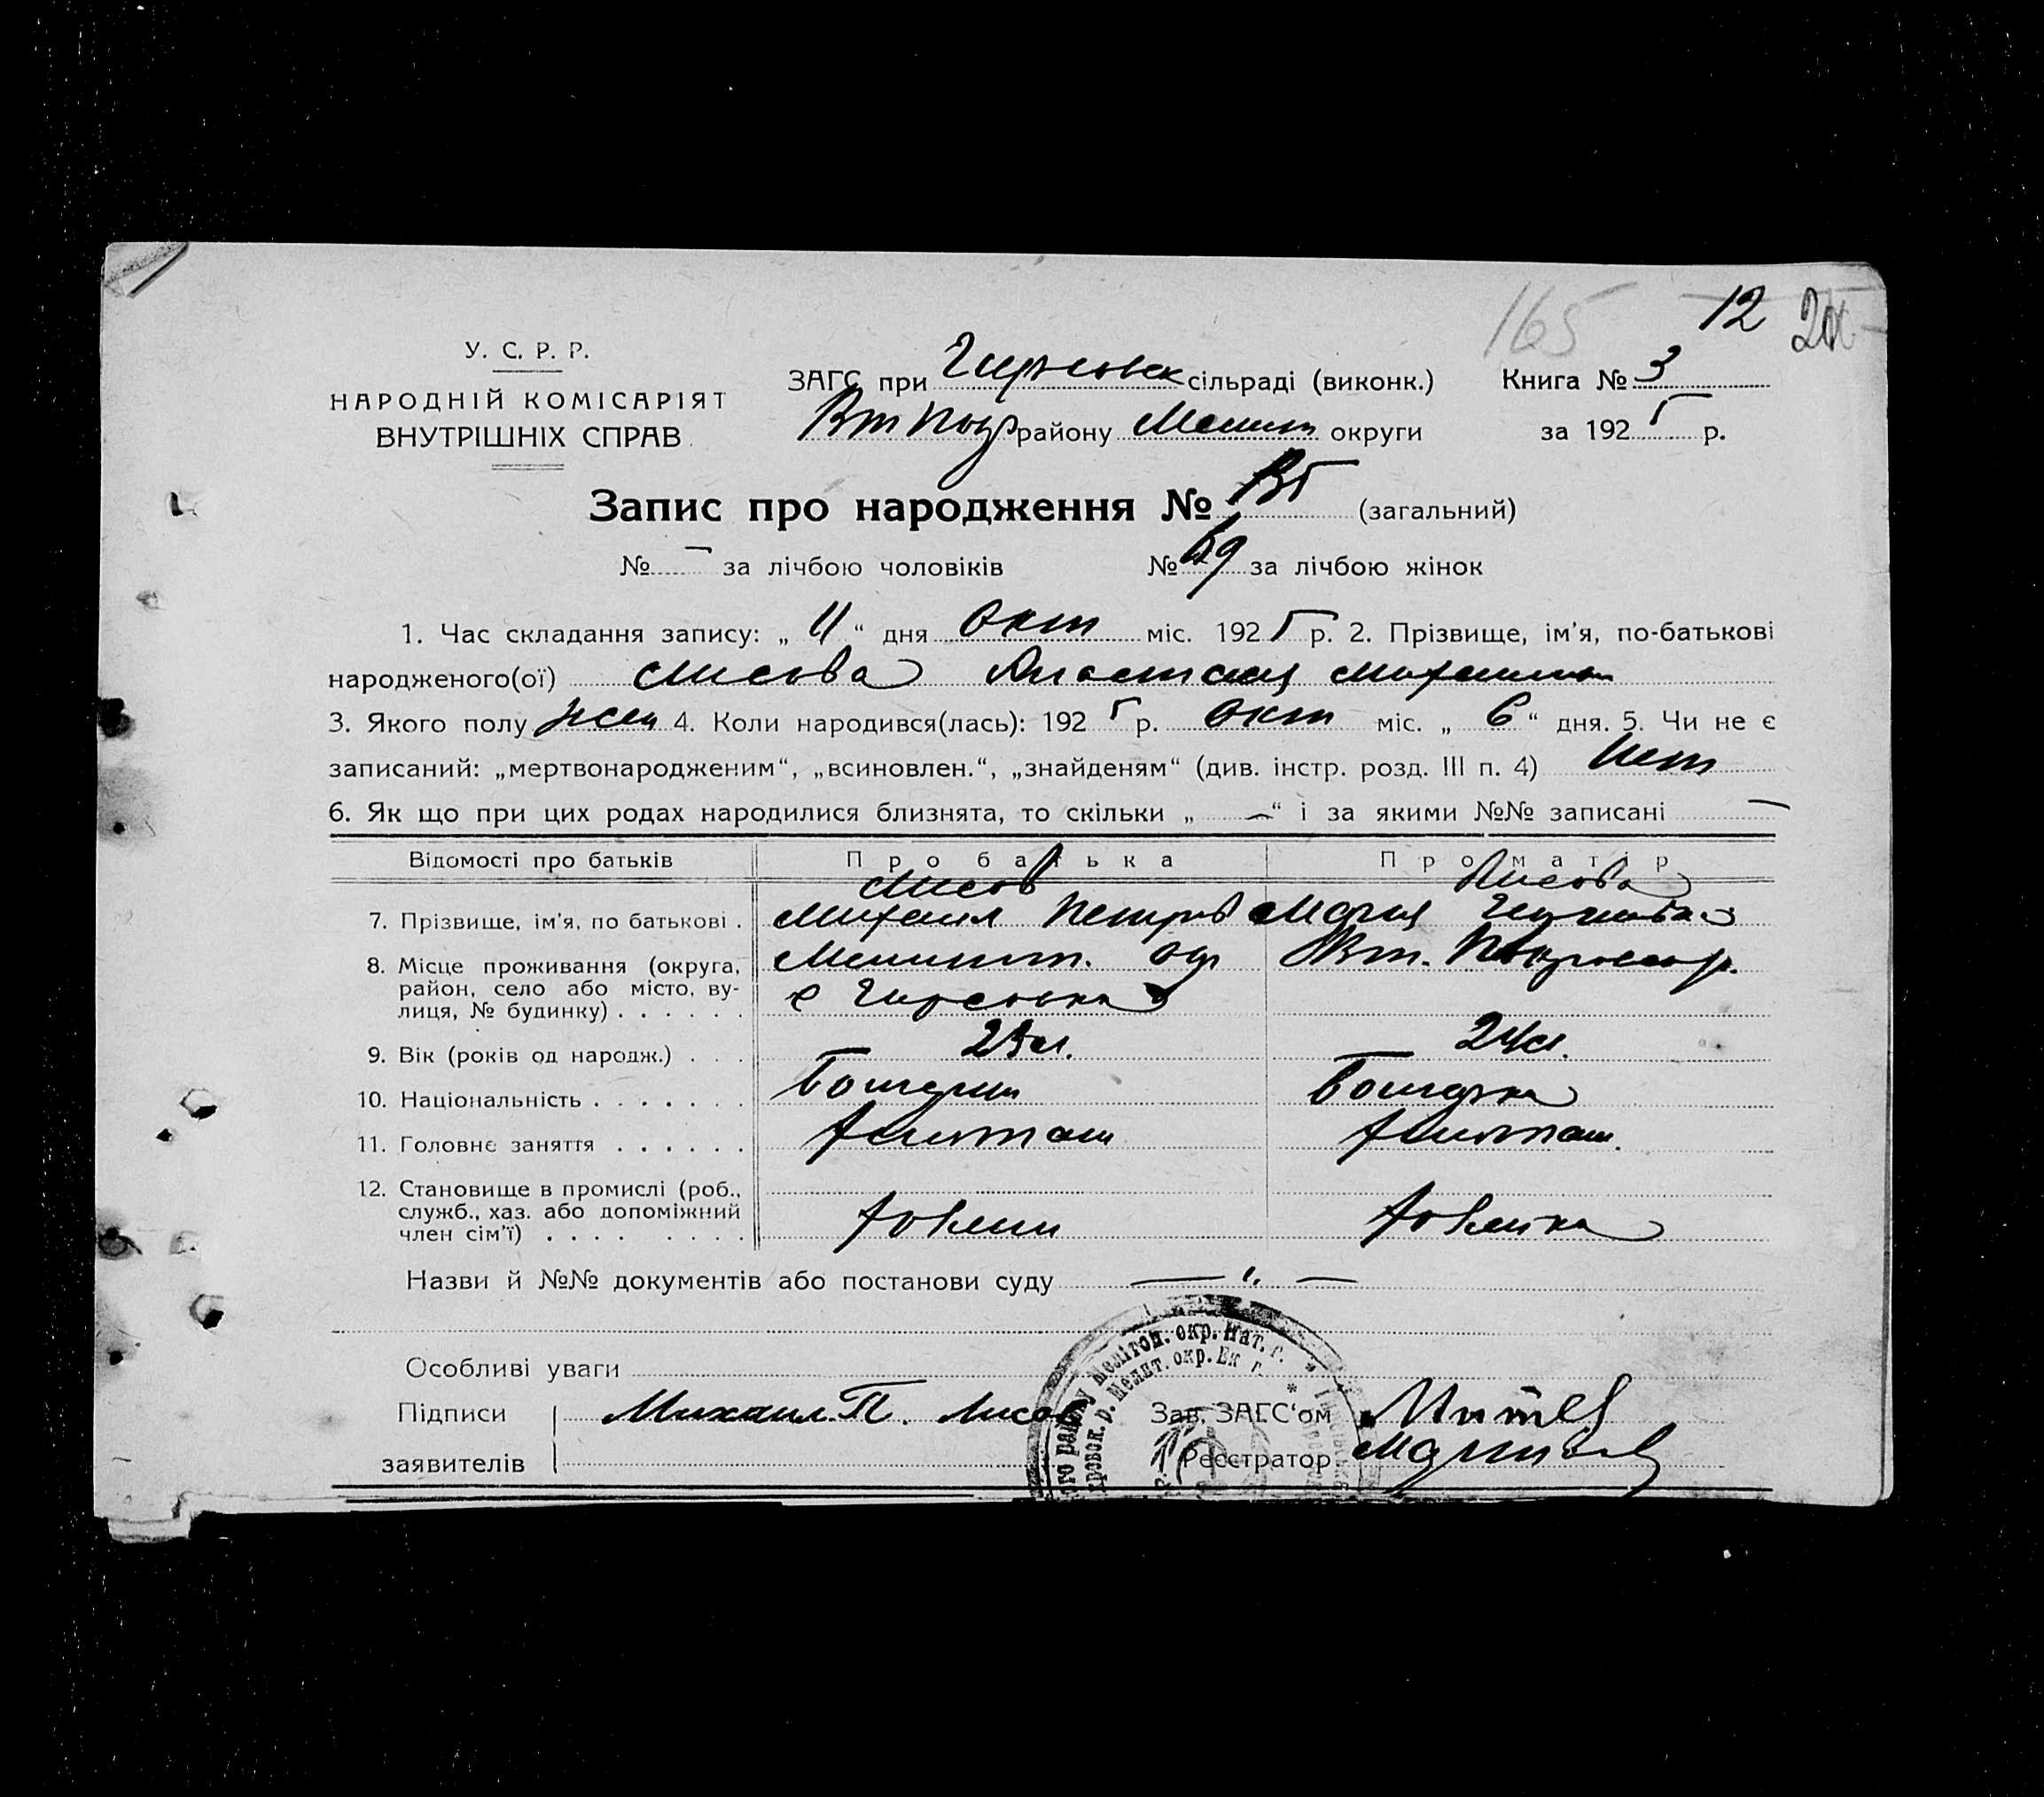 165 12
У. С. Р. Р.
НАРОДНІЙ КОМІСАРІЯТ
ВНУТРІШНІХ СПРАВ
ЗАГС при Гирсовск сільраді (виконк.) Книга № 3
Вт Покр району Мелит округи за 1925 р.
Запис про народження № 135 (загальний)
№ — за лічбою чоловіків № 69 за лічбою жінок
1. Час складання запису: „ 11 “ дня Окт міс. 1925 р. 2. Прізвище, ім'я, по-батькові
народженого(ої) Лисова Анастасия Михаилов
3. Якого полу жен 4. Коли народився(лась): 1925 р. Окт міс. „ 6 “ дня. 5. Чи не є
записаний: „мертвонародженим“, „всиновлен.“, „знайденям“ (див. інстр. розд. III п. 4) Нет
6. Як що при цих родах народилися близнята, то скільки „ — “ і за якими №№ записані —
Відомості про батьків Про батька Про матір
Лисов Лисова
7. Прізвище, ім'я, по батькові . Михаил Петров Мария
8. Місце проживання (округа, Мелитоп. окр Вт. Покровск р.
район, село або місто, ву- с Гирсовка
лиця, № будинку) . . . . . .
9. Вік (років од народж.) . . . 23 л. 24 л.
10. Національність . . . . . . . Болгарин Болгарка
11. Головне заняття . . . . . . Хлебопаш Хлебопаш.
12. Становище в промислі (роб.,
служб., хаз. або допоміжний
член сім'ї) . . . . . . . . Хозяин Хозяйка
Назви й №№ документів або постанови суду — „ —
Особливі уваги
Підписи Михаил. П. Лисов Зав. ЗАГС‘ом
заявителів Реєстратор
району Мелітоп. окр. Кат. г.
кровск. р. Мелит. окр. Ек г.